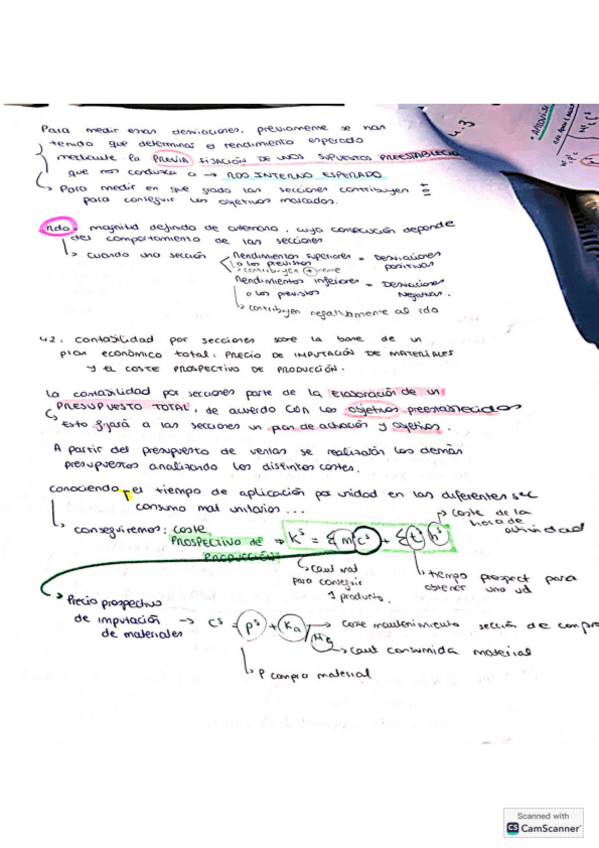 4.3
Para medir esas desviaciones, previamente se han
tenido que determinar el rendimiento esperado
mediante la PREVIA FIJACIÓN DE UNOS SUPUESTOS PREESTABLECID
que nos conduzca a → RDO INTERNO ESPERADO
Para medir en que grado las secciones contribuyen
para conseguir los objetivos marcados.
Rdo. magnitud definida de antemano, cuya consecución depende
del comportamiento de las secciones
↳ cuando una sección
Rendimientos superiores = Desviaciones
a los previstos positivas
↳ contribuyen ⊕mente
Rendimientos inferiores = Desviaciones
a los previstos Negativas.
↳ contribuyen negativamente al rdo
4.2. Contabilidad por secciones sobre la base de un
plan económico total: PRECIO DE IMPUTACIÓN DE MATERIALES
Y EL COSTE PROSPECTIVO DE PRODUCCIÓN.
La contabilidad por secciones parte de la Elaboración de un
PRESUPUESTO TOTAL, de acuerdo con los objetivos preestablecidos
Esto fijará a las secciones un plan de actuación y objetivos.
A partir del presupuesto de ventas se realizarán los demás
presupuestos analizando los distintos costes.
conociendo el tiempo de aplicación por unidad en las diferentes sec
consumo mat unitarios...
↳ conseguiremos: coste
PROSPECTIVO de → Kˢ = Σ m cˢ + Σ t hˢ
PRODUCCIÓN
↳ coste de la
hora de
actividad
↳ cant mat
para conseguir
1 producto.
↳ tiempo prospect para
obtener una ud
↳ Precio prospectivo
de imputación → Cˢ = pˢ + Ka/Mc
de materiales
→ coste mantenimiento sección de compra
→ cant consumida material
↳ P compra material
Scanned with
CS CamScanner